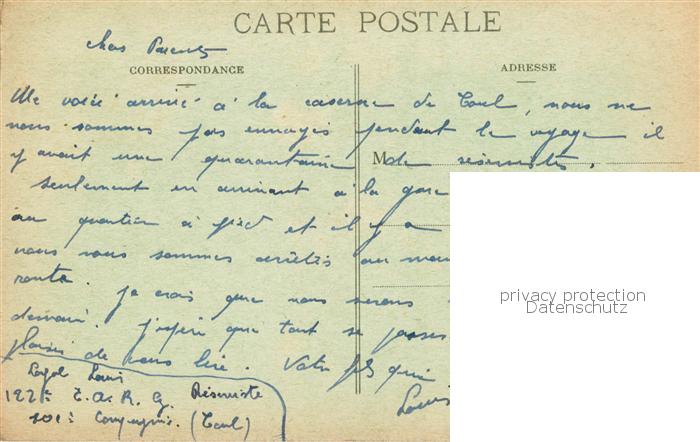 CARTE POSTALE
chers Parents
CORRESPONDANCE
ADRESSE
Me voici arrivé à la caserne de Toul, nous ne
nous sommes pas ennuyés pendant le voyage il
y avait une quarantaine de réservistes.
M
seulement en arrivant à la gare
au quartier à pied et il y a
nous nous sommes arrêtés au
route.
Je crois que nous serons
demain. J'espère que tout se passe
plaisir de vous lire. Votre fils qui
Louis
Louis
Réserviste
Compagnie. (Toul)
privacy protection
Datenschutz